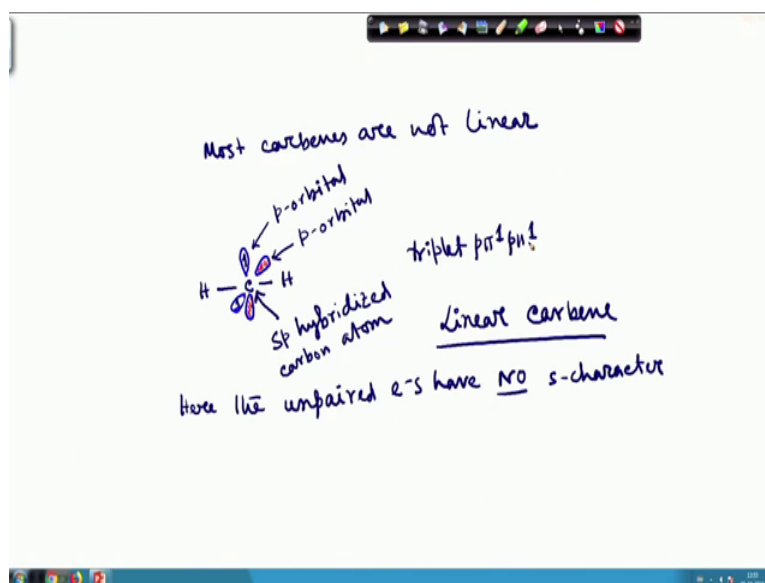 Most carbenes are not linear
p-orbital
p-orbital
H - C - H
triplet pπ¹ pπ¹
sp hybridized
carbon atom
Linear Carbene
Here the unpaired e-s have NO s-character